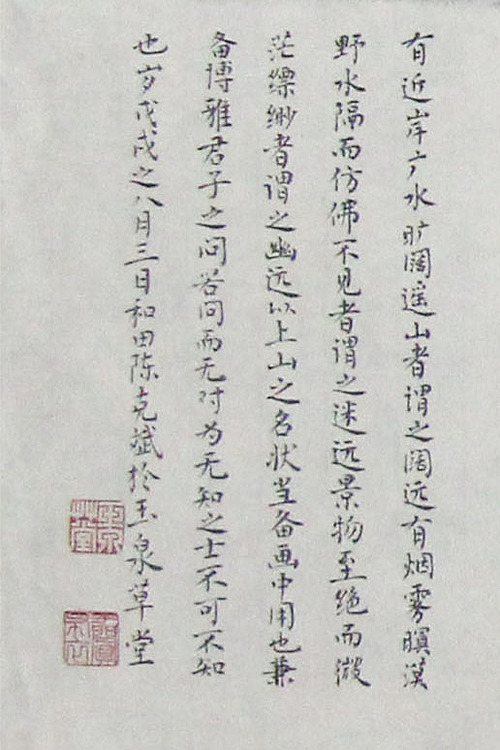 有近岸广水旷阔遥山者谓之阔远有烟雾暝漠
野水隔而仿佛不见者谓之迷远景物至绝而微
茫缥缈者谓之幽远以上山之名状当备画中用也兼
备博雅君子之问若问而无对为无知之士不可不知
也岁戊戌之八月三日和田陈克斌於玉泉草堂